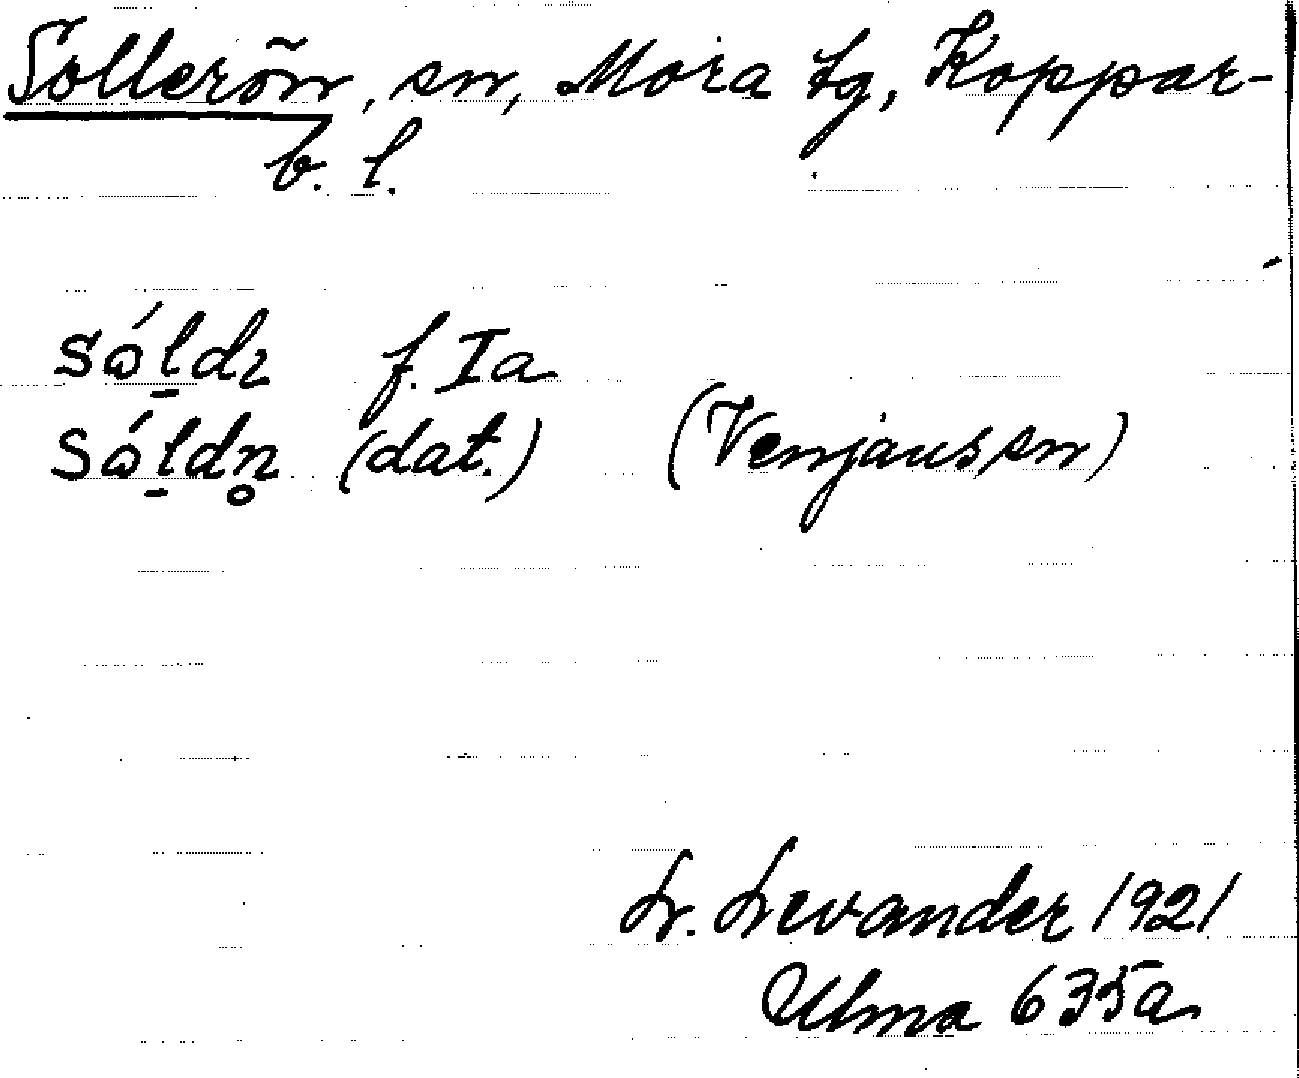 Sollerön, sn, Mora tg, Koppar-
b. l.
sól̠dɩ f. Ia
sól̠dn̥ (dat.) (Venjans sn)
L. Levander 1921
Ulma 635a